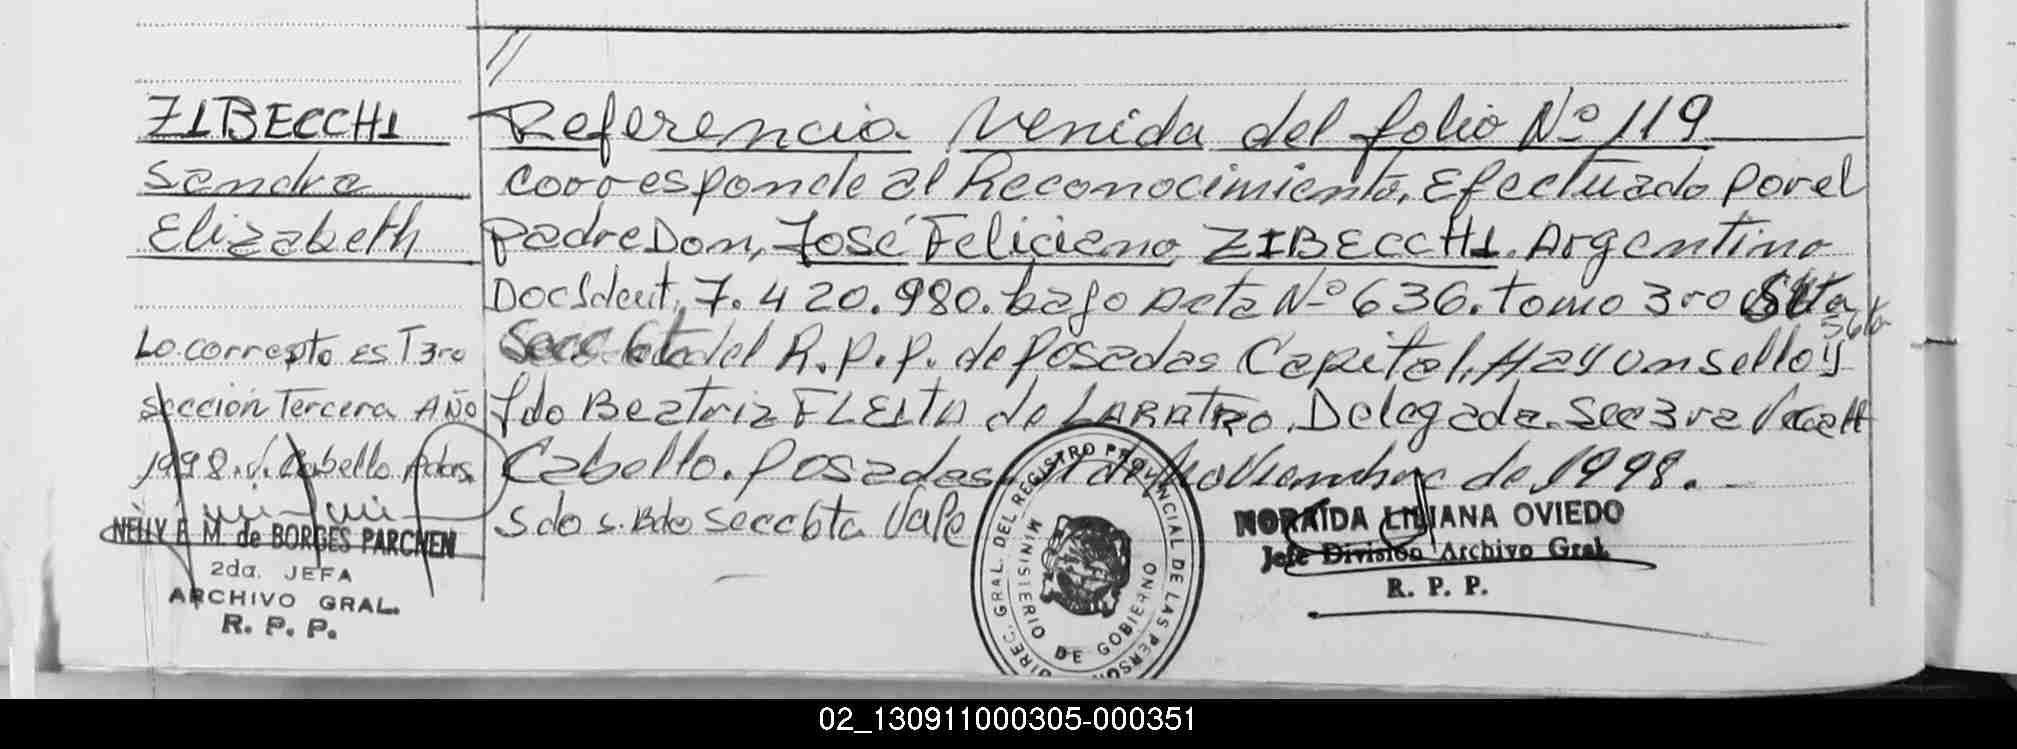 //
ZIBECCHI
Sandra
Elizabeth
Referencia Venida del folio Nº 119
corresponde al Reconocimiento, Efectuado por el
padre Don, José Feliciano ZIBECCHI. Argentino
Doc Ident, 7.420.980. bajo Acta Nº 636. tomo 3ro
del R.P.P. de Posadas Capital. Hay un sello y
fdo Beatriz FLEITA de Delegada. Secc 3ra
Cabello. Posadas, de Noviembre de 1998.
Sdo s. Bdo Secc 6ta Vale
Lo correpto es T 3ro
sección Tercera AÑO
1998. V. Cabello. Pdas.
NELLY E. M. de BORGES PARCHEN
2da. JEFA
ARCHIVO GRAL.
R. P. P.
DIREC. GRAL. DEL REGISTRO PROVINCIAL DE LAS PERSON
MINISTERIO DE GOBIERNO
NORAIDA LILIANA OVIEDO
Jefe División Archivo Gral.
R. P. P.
02_130911000305-000351